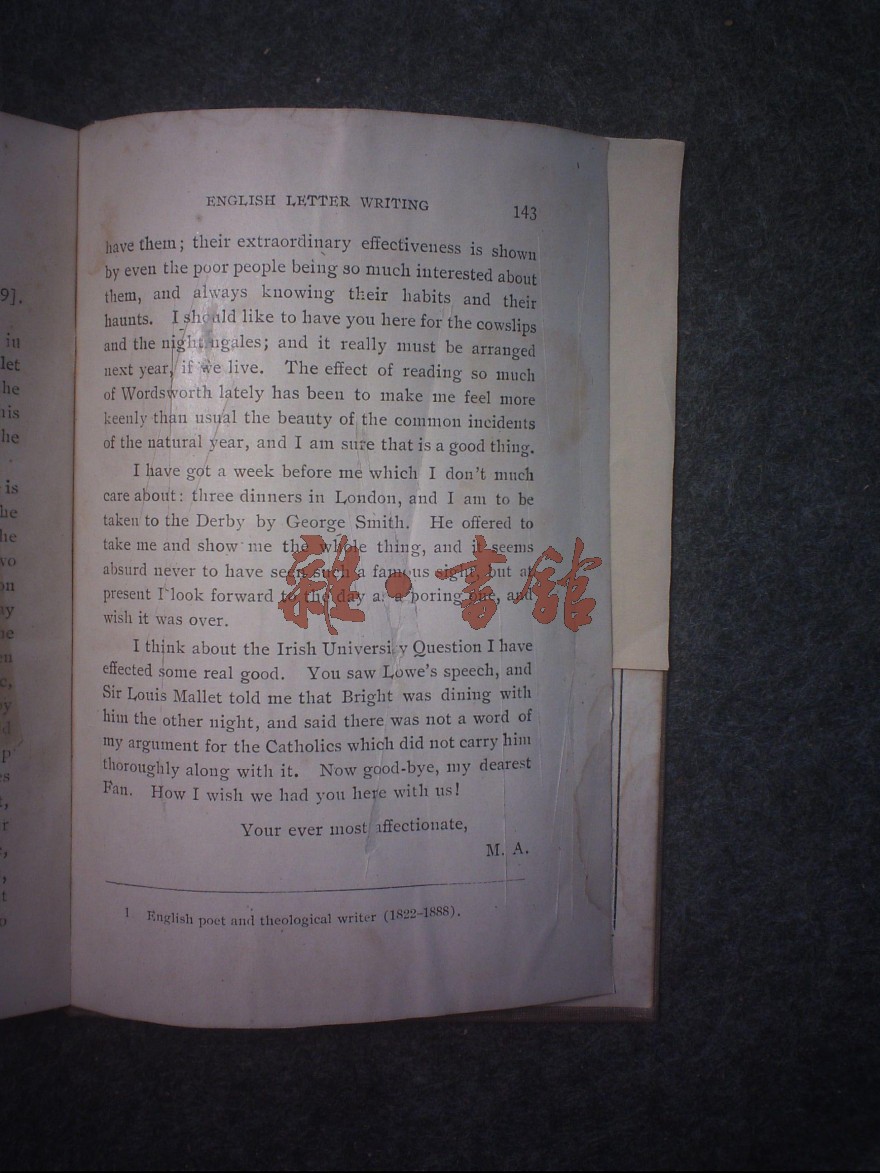 ENGLISH LETTER WRITING
143
have them; their extraordinary effectiveness is shown
by even the poor people being so much interested about
them, and always knowing their habits and their
haunts. I should like to have you here for the cowslips
and the nightingales; and it really must be arranged
next year, if we live. The effect of reading so much
of Wordsworth lately has been to make me feel more
keenly than usual the beauty of the common incidents
of the natural year, and I am sure that is a good thing.
I have got a week before me which I don't much
care about: three dinners in London, and I am to be
taken to the Derby by George Smith. He offered to
take me and show me the whole thing, and it seems
absurd never to have seen such a famous sight, but at
present I look forward to the day as a boring one, and
wish it was over.
I think about the Irish University Question I have
effected some real good. You saw Lowe's speech, and
Sir Louis Mallet told me that Bright was dining with
him the other night, and said there was not a word of
my argument for the Catholics which did not carry him
thoroughly along with it. Now good-bye, my dearest
Fan. How I wish we had you here with us!
Your ever most affectionate,
M. A.
1 English poet and theological writer (1822-1888).
雜·書館
9].
in
let
he
is
he